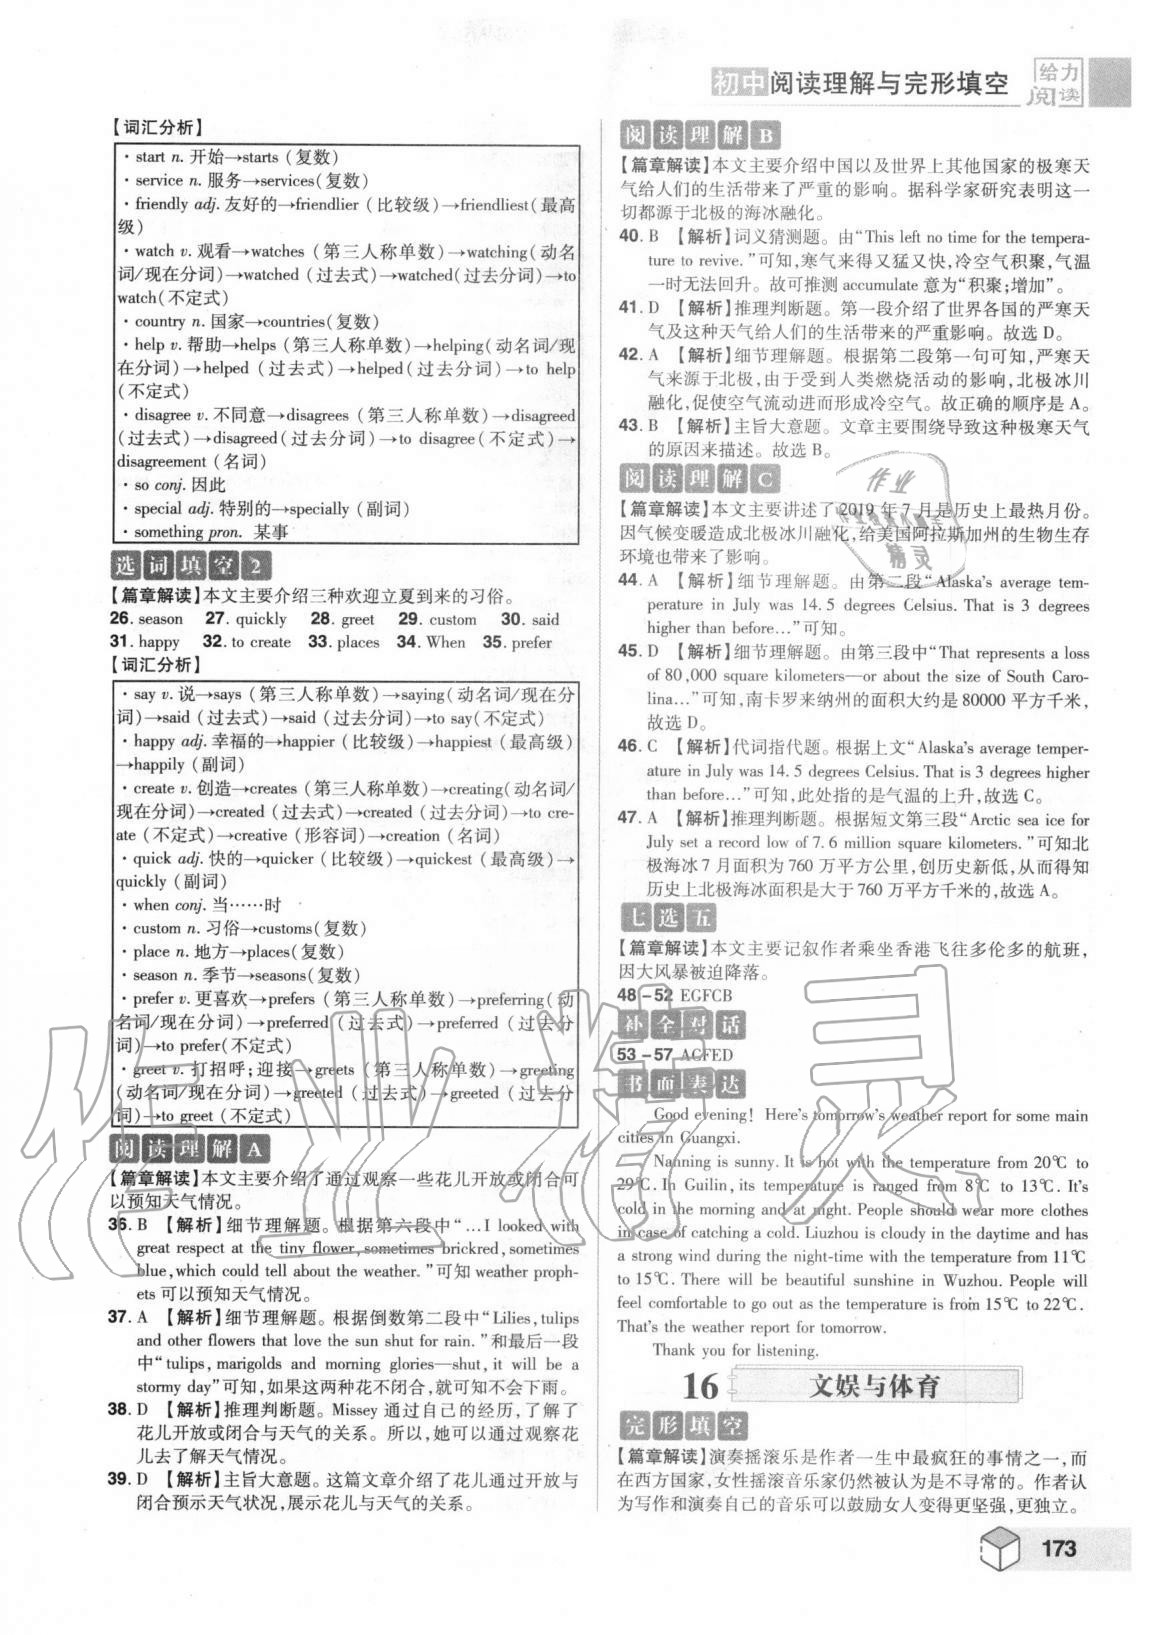 初中阅读理解与完形填空
给力
阅读
【词汇分析】
· start n. 开始→starts (复数)
· service n. 服务→services(复数)
· friendly adj. 友好的→friendlier (比较级)→friendliest(最高
级)
· watch v. 观看→watches (第三人称单数)→watching(动名
词/现在分词)→watched (过去式)→watched(过去分词)→to
watch(不定式)
· country n. 国家→countries(复数)
· help v. 帮助→helps (第三人称单数)→helping(动名词/现
在分词)→helped (过去式)→helped(过去分词)→to help
(不定式)
· disagree v. 不同意→disagrees (第三人称单数)→disagreed
(过去式)→disagreed(过去分词)→to disagree(不定式)→
disagreement (名词)
· so conj. 因此
· special adj. 特别的→specially (副词)
· something pron. 某事
选词填空2
【篇章解读】本文主要介绍三种欢迎立夏到来的习俗。
26. season 27. quickly 28. greet 29. custom 30. said
31. happy 32. to create 33. places 34. When 35. prefer
【词汇分析】
· say v. 说→says (第三人称单数)→saying(动名词/现在分
词)→said (过去式)→said (过去分词)→to say(不定式)
· happy adj. 幸福的→happier (比较级)→happiest (最高级)
→happily (副词)
· create v. 创造→creates (第三人称单数)→creating(动名词/
现在分词)→created (过去式)→created (过去分词)→to cre-
ate (不定式)→creative (形容词)→creation (名词)
· quick adj. 快的→quicker (比较级)→quickest (最高级)→
quickly (副词)
· when conj. 当……时
· custom n. 习俗→customs(复数)
· place n. 地方→places(复数)
· season n. 季节→seasons(复数)
· prefer v. 更喜欢→prefers (第三人称单数)→preferring(动
名词/现在分词)→preferred (过去式)→preferred (过去分
词)→to prefer(不定式)
· greet v. 打招呼;迎接→greets (第三人称单数)→greeting
(动名词/现在分词)→greeted (过去式)→greeted (过去分
词)→to greet (不定式)
阅读理解A
【篇章解读】本文主要介绍了通过观察一些花儿开放或闭合可
以预知天气情况。
36. B 【解析】细节理解题。根据第六段中“…I looked with
great respect at the tiny flower, sometimes brickred, sometimes
blue, which could tell about the weather. ”可知 weather proph-
ets 可以预知天气情况。
37. A 【解析】细节理解题。根据倒数第二段中“Lilies, tulips
and other flowers that love the sun shut for rain. ”和最后一段
中“tulips, marigolds and morning glories—shut, it will be a
stormy day”可知,如果这两种花不闭合,就可知不会下雨。
38. D 【解析】推理判断题。Missey 通过自己的经历,了解了
花儿开放或闭合与天气的关系。所以,她可以通过观察花
儿去了解天气情况。
39. D 【解析】主旨大意题。这篇文章介绍了花儿通过开放与
闭合预示天气状况,展示花儿与天气的关系。
阅读理解B
【篇章解读】本文主要介绍中国以及世界上其他国家的极寒天
气给人们的生活带来了严重的影响。据科学家研究表明这一
切都源于北极的海冰融化。
40. B 【解析】词义猜测题。由“This left no time for the tempera-
ture to revive. ”可知,寒气来得又猛又快,冷空气积聚,气温
一时无法回升。故可推测 accumulate 意为“积聚;增加”。
41. D 【解析】推理判断题。第一段介绍了世界各国的严寒天
气及这种天气给人们的生活带来的严重影响。故选 D。
42. A 【解析】细节理解题。根据第二段第一句可知,严寒天
气来源于北极,由于受到人类燃烧活动的影响,北极冰川
融化,促使空气流动进而形成冷空气。故正确的顺序是 A。
43. B 【解析】主旨大意题。文章主要围绕导致这种极寒天气
的原因来描述。故选 B。
阅读理解C
【篇章解读】本文主要讲述了 2019 年 7 月是历史上最热月份。
因气候变暖造成北极冰川融化,给美国阿拉斯加州的生物生存
环境也带来了影响。
44. A 【解析】细节理解题。由第二段“Alaska's average tem-
perature in July was 14. 5 degrees Celsius. That is 3 degrees
higher than before…”可知。
45. D 【解析】细节理解题。由第三段中“That represents a loss
of 80,000 square kilometers—or about the size of South Caro-
lina…”可知,南卡罗来纳州的面积大约是 80000 平方千米,
故选 D。
46. C 【解析】代词指代题。根据上文“Alaska's average temper-
ature in July was 14. 5 degrees Celsius. That is 3 degrees higher
than before…”可知,此处指的是气温的上升,故选 C。
47. A 【解析】推理判断题。根据短文第三段“Arctic sea ice for
July set a record low of 7. 6 million square kilometers. ”可知北
极海冰 7 月面积为 760 万平方公里,创历史新低,从而得知
历史上北极海冰面积是大于 760 万平方千米的,故选 A。
七选五
【篇章解读】本文主要记叙作者乘坐香港飞往多伦多的航班,
因大风暴被迫降落。
48-52 EGFCB
补全对话
53-57 ACFED
书面表达
Good evening! Here's tomorrow's weather report for some main
cities in Guangxi.
Nanning is sunny. It is hot with the temperature from 20℃ to
29℃. In Guilin, its temperature is ranged from 8℃ to 13℃. It's
cold in the morning and at night. People should wear more clothes
in case of catching a cold. Liuzhou is cloudy in the daytime and has
a strong wind during the night-time with the temperature from 11℃
to 15℃. There will be beautiful sunshine in Wuzhou. People will
feel comfortable to go out as the temperature is from 15℃ to 22℃.
That's the weather report for tomorrow.
Thank you for listening.
16 文娱与体育
完形填空
【篇章解读】演奏摇滚乐是作者一生中最疯狂的事情之一,而
在西方国家,女性摇滚音乐家仍然被认为是不寻常的。作者认
为写作和演奏自己的音乐可以鼓励女人变得更坚强,更独立。
173
作业精灵
作业
精灵